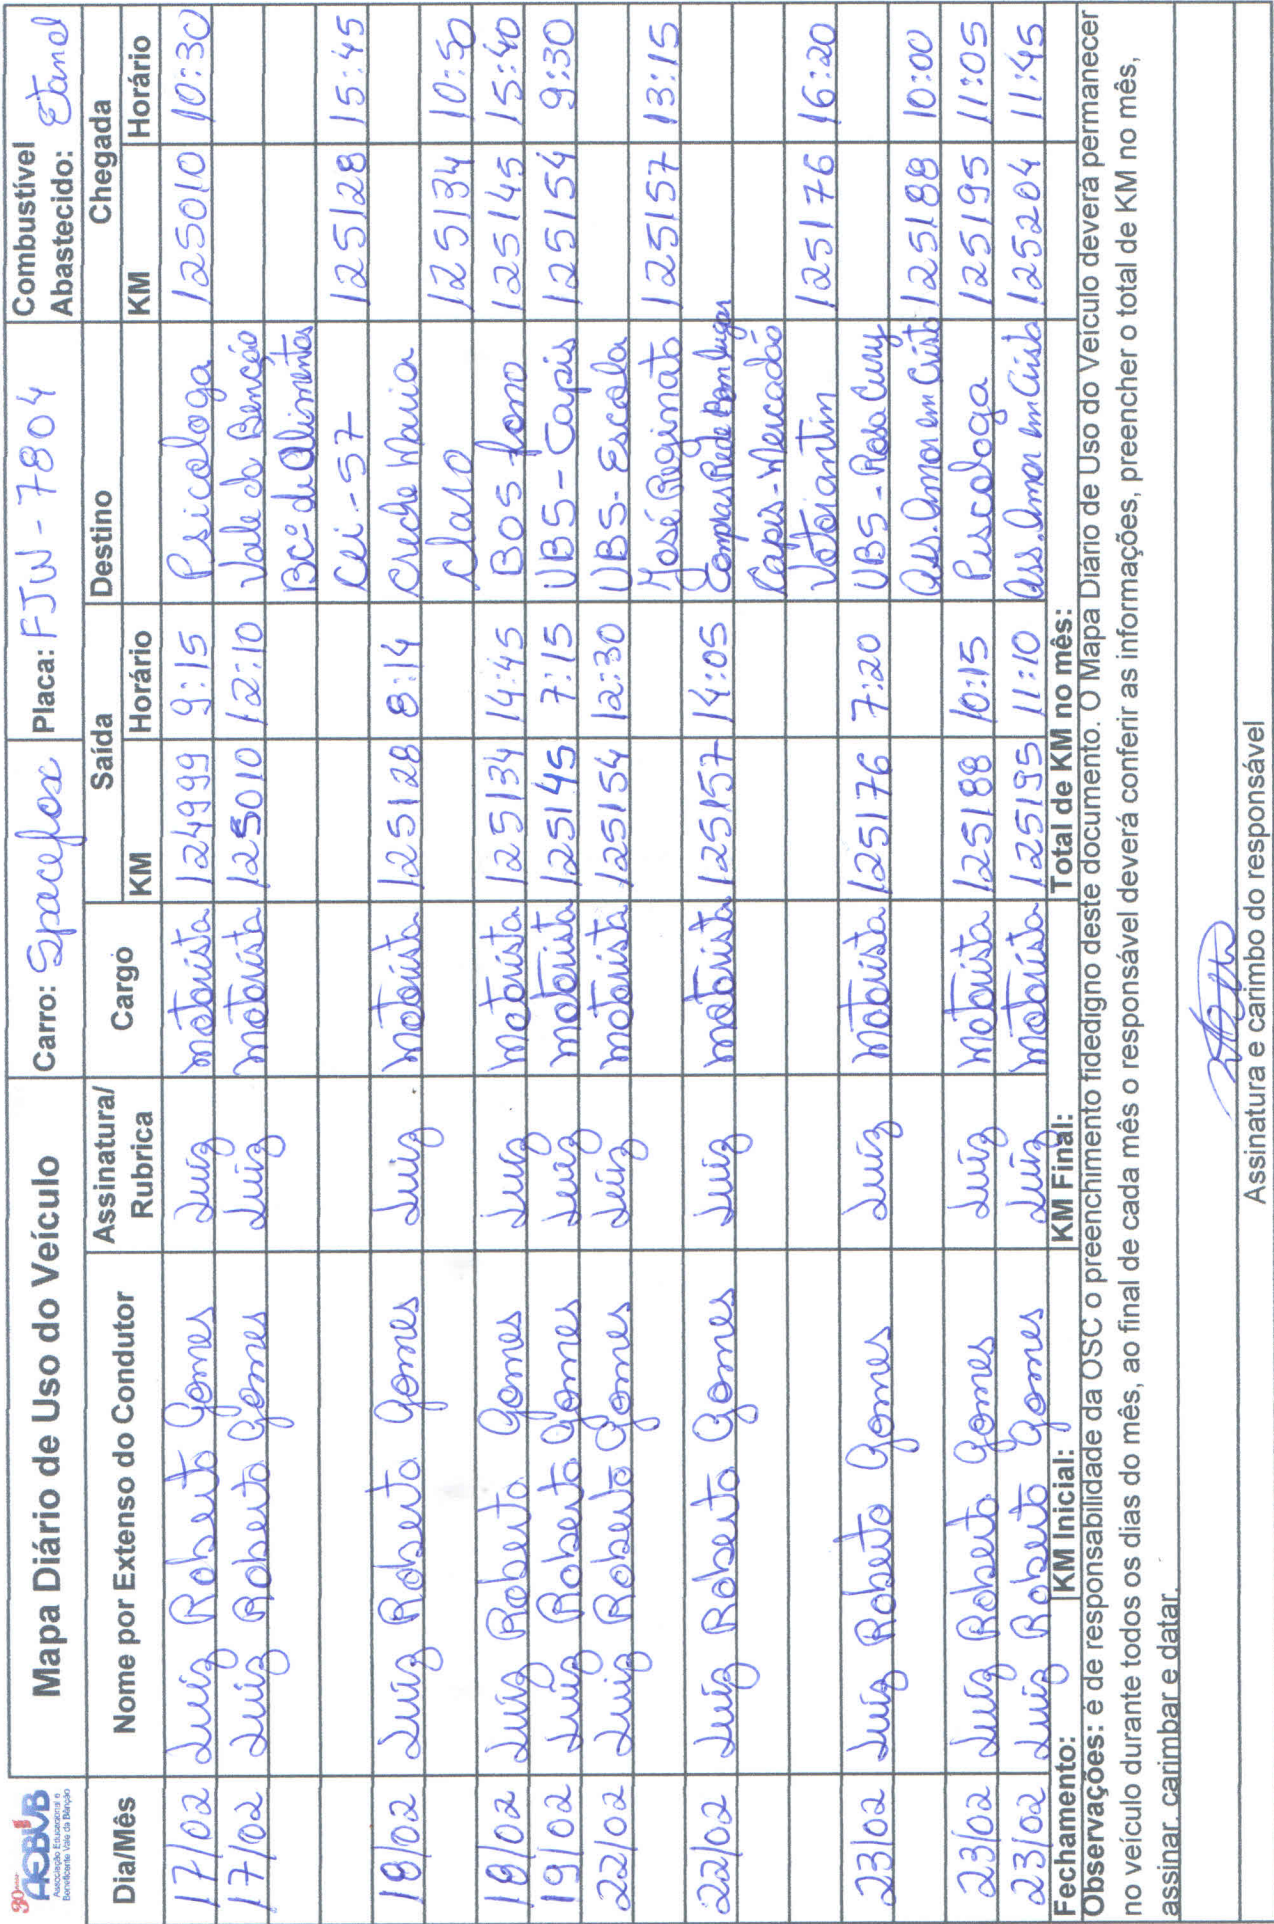 30 anos
AEBVB
Associação Educacional e
Beneficente Vale da Bênção
Mapa Diário de Uso do Veículo
Carro: Spacefox
Placa: FJW-7804
Combustível
Abastecido: Etanol
Dia/Mês Nome por Extenso do Condutor Assinatura/ Rubrica Cargo Saída Destino Chegada
KM Horário KM Horário
17/02 Luiz Roberto Gomes Luiz motorista 124999 9:15 Psicologa 125010 10:30
17/02 Luiz Roberto Gomes Luiz motorista 125010 12:10 Vale da Benção
Bcº de Alimentos
Cei-57 125128 15:45
18/02 Luiz Roberto Gomes Luiz motorista 125128 8:14 Creche Maria
Claro 125134 10:50
18/02 Luiz Roberto Gomes Luiz motorista 125134 14:45 BOS fono 125145 15:40
19/02 Luiz Roberto Gomes Luiz motorista 125145 7:15 UBS-Capis 125154 9:30
22/02 Luiz Roberto Gomes Luiz motorista 125154 12:30 UBS-Escola
José Reginato 125157 13:15
22/02 Luiz Roberto Gomes Luiz motorista 125157 14:05 Compras Rede Bom lugar
Capis-Mercadão
Votorantin 125176 16:20
23/02 Luiz Roberto Gomes Luiz motorista 125176 7:20 UBS-Rosa Cury
Ass. Amor em Cristo 125188 10:00
23/02 Luiz Roberto Gomes Luiz motorista 125188 10:15 Piscologa 125195 11:05
23/02 Luiz Roberto Gomes Luiz motorista 125195 11:10 Ass. Amor em Cristo 125204 11:45
Fechamento: KM Inicial: KM Final: Total de KM no mês:
Observações: é de responsabilidade da OSC o preenchimento fidedigno deste documento. O Mapa Diário de Uso do Veículo deverá permanecer
no veículo durante todos os dias do mês, ao final de cada mês o responsável deverá conferir as informações, preencher o total de KM no mês,
assinar, carimbar e datar.
Assinatura e carimbo do responsável